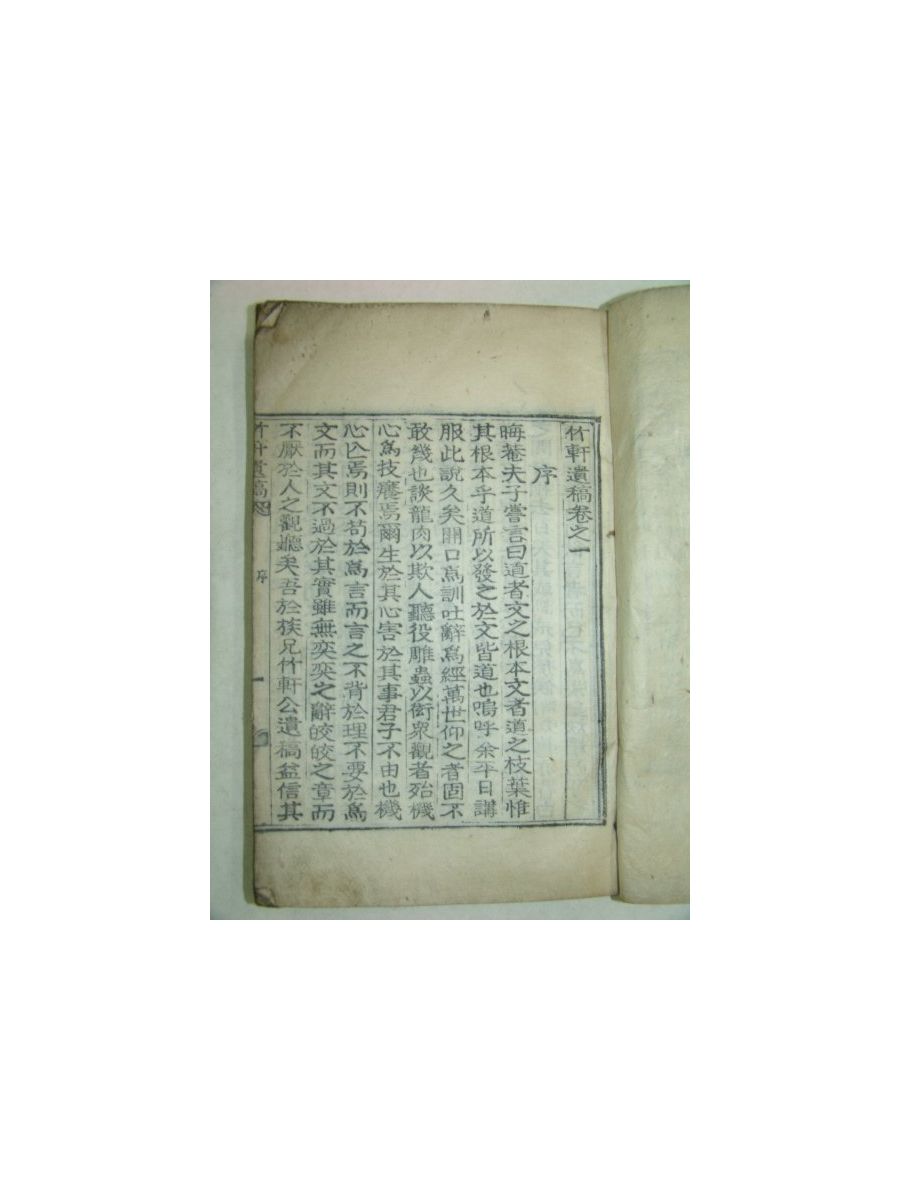 竹軒遺稿卷之一
序
晦菴夫子嘗言曰道者文之根本文者道之枝葉惟
其根本乎道所以發之於文皆道也嗚呼余平日講
服此說久矣開口爲訓吐辭爲經萬世仰之者固不
敢幾也談龍肉以欺人聽役雕蟲以衒衆觀者殆機
心爲技癢焉爾生於其心害於其事君子不由也機
心亾焉則不苟於爲言而言之不背於理不要於爲
文而其文不過於其實雖無奕奕之辭皎皎之章而
不厭於人之觀聽矣吾於族兄竹軒公遺稿益信其
竹軒遺稿
序
一